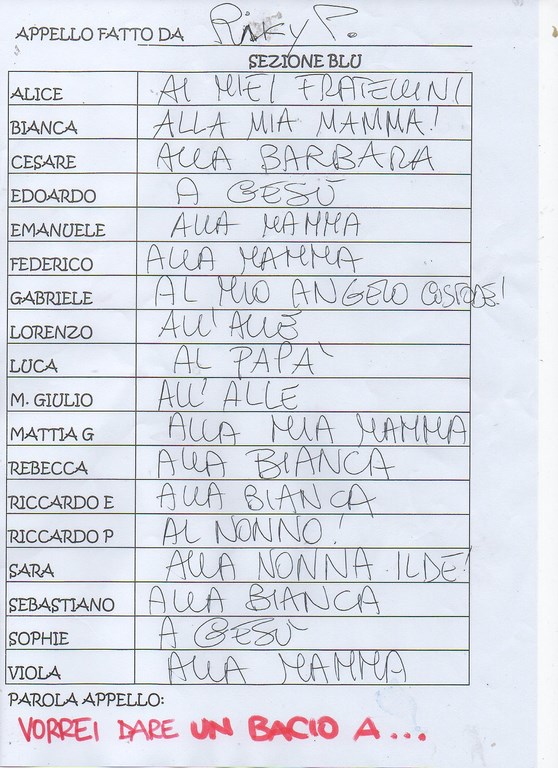 APPELLO FATTO DA Ricky P.
SEZIONE BLU
ALICE AI MIEI FRATELLINI
BIANCA ALLA MIA MAMMA!
CESARE ALLA BARBARA
EDOARDO A GESÙ
EMANUELE ALLA MAMMA
FEDERICO ALLA MAMMA
GABRIELE AL MIO ANGELO CUSTODE!
LORENZO ALL'ALLE
LUCA AL PAPÀ
M. GIULIO ALL'ALLE
MATTIA G ALLA MIA MAMMA
REBECCA ALLA BIANCA
RICCARDO E ALLA BIANCA
RICCARDO P AL NONNO!
SARA ALLA NONNA ILDE!
SEBASTIANO ALLA BIANCA
SOPHIE A GESÙ
VIOLA ALLA MAMMA
PAROLA APPELLO:
VORREI DARE UN BACIO A...